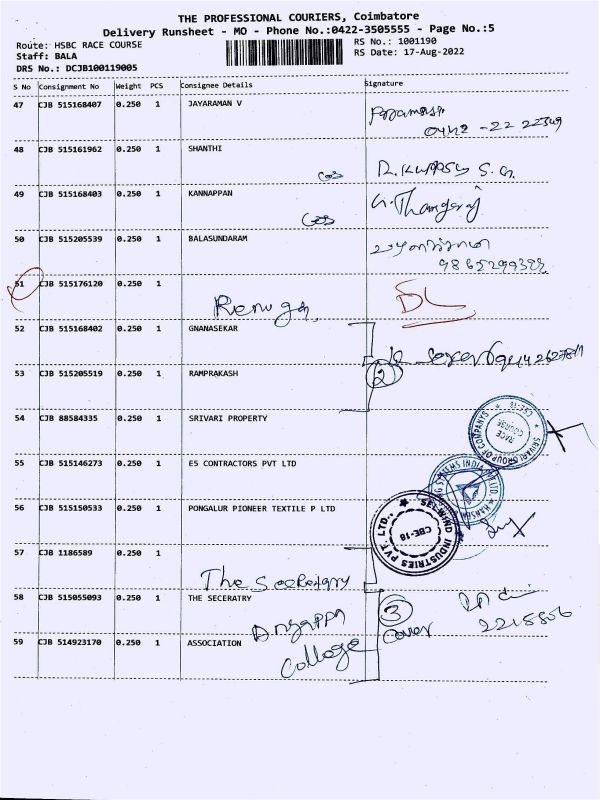 THE PROFESSIONAL COURIERS, Coimbatore
Delivery Runsheet - MO - Phone No.:0422-3505555 - Page No.:5
Route: HSBC RACE COURSE
RS No.: 1001190
Staff: BALA
RS Date: 17-Aug-2022
DRS No.: DCJB100119005
S No Consignment No Weight PCS Consignee Details Signature
47 CJB 515168407 0.250 1 JAYARAMAN V
48 CJB 515161962 0.250 1 SHANTHI
49 CJB 515168403 0.250 1 KANNAPPAN
G. Thangaraj
50 CJB 515205539 0.250 1 BALASUNDARAM
51 CJB 515176120 0.250 1
Renuga
DL
52 CJB 515168402 0.250 1 GNANASEKAR
53 CJB 515205519 0.250 1 RAMPRAKASH
2
54 CJB 88584335 0.250 1 SRIVARI PROPERTY
SRIVARI GROUP OF COMPANYS
RACE COURSE
CBE-18
55 CJB 515146273 0.250 1 ES CONTRACTORS PVT LTD
56 CJB 515150533 0.250 1 PONGALUR PIONEER TEXTILE P LTD
INDUSTRIES PVT. LTD.,
CBE-18
57 CJB 1186589 0.250 1
The Secretary
58 CJB 515055093 0.250 1 THE SECERATRY
3
Cover
2218806
59 CJB 514923170 0.250 1 ASSOCIATION
College